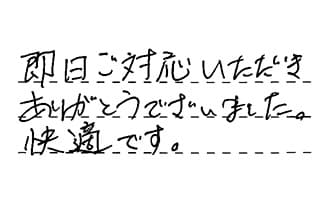 即日ご対応いただき
ありがとうございました。
快適です。